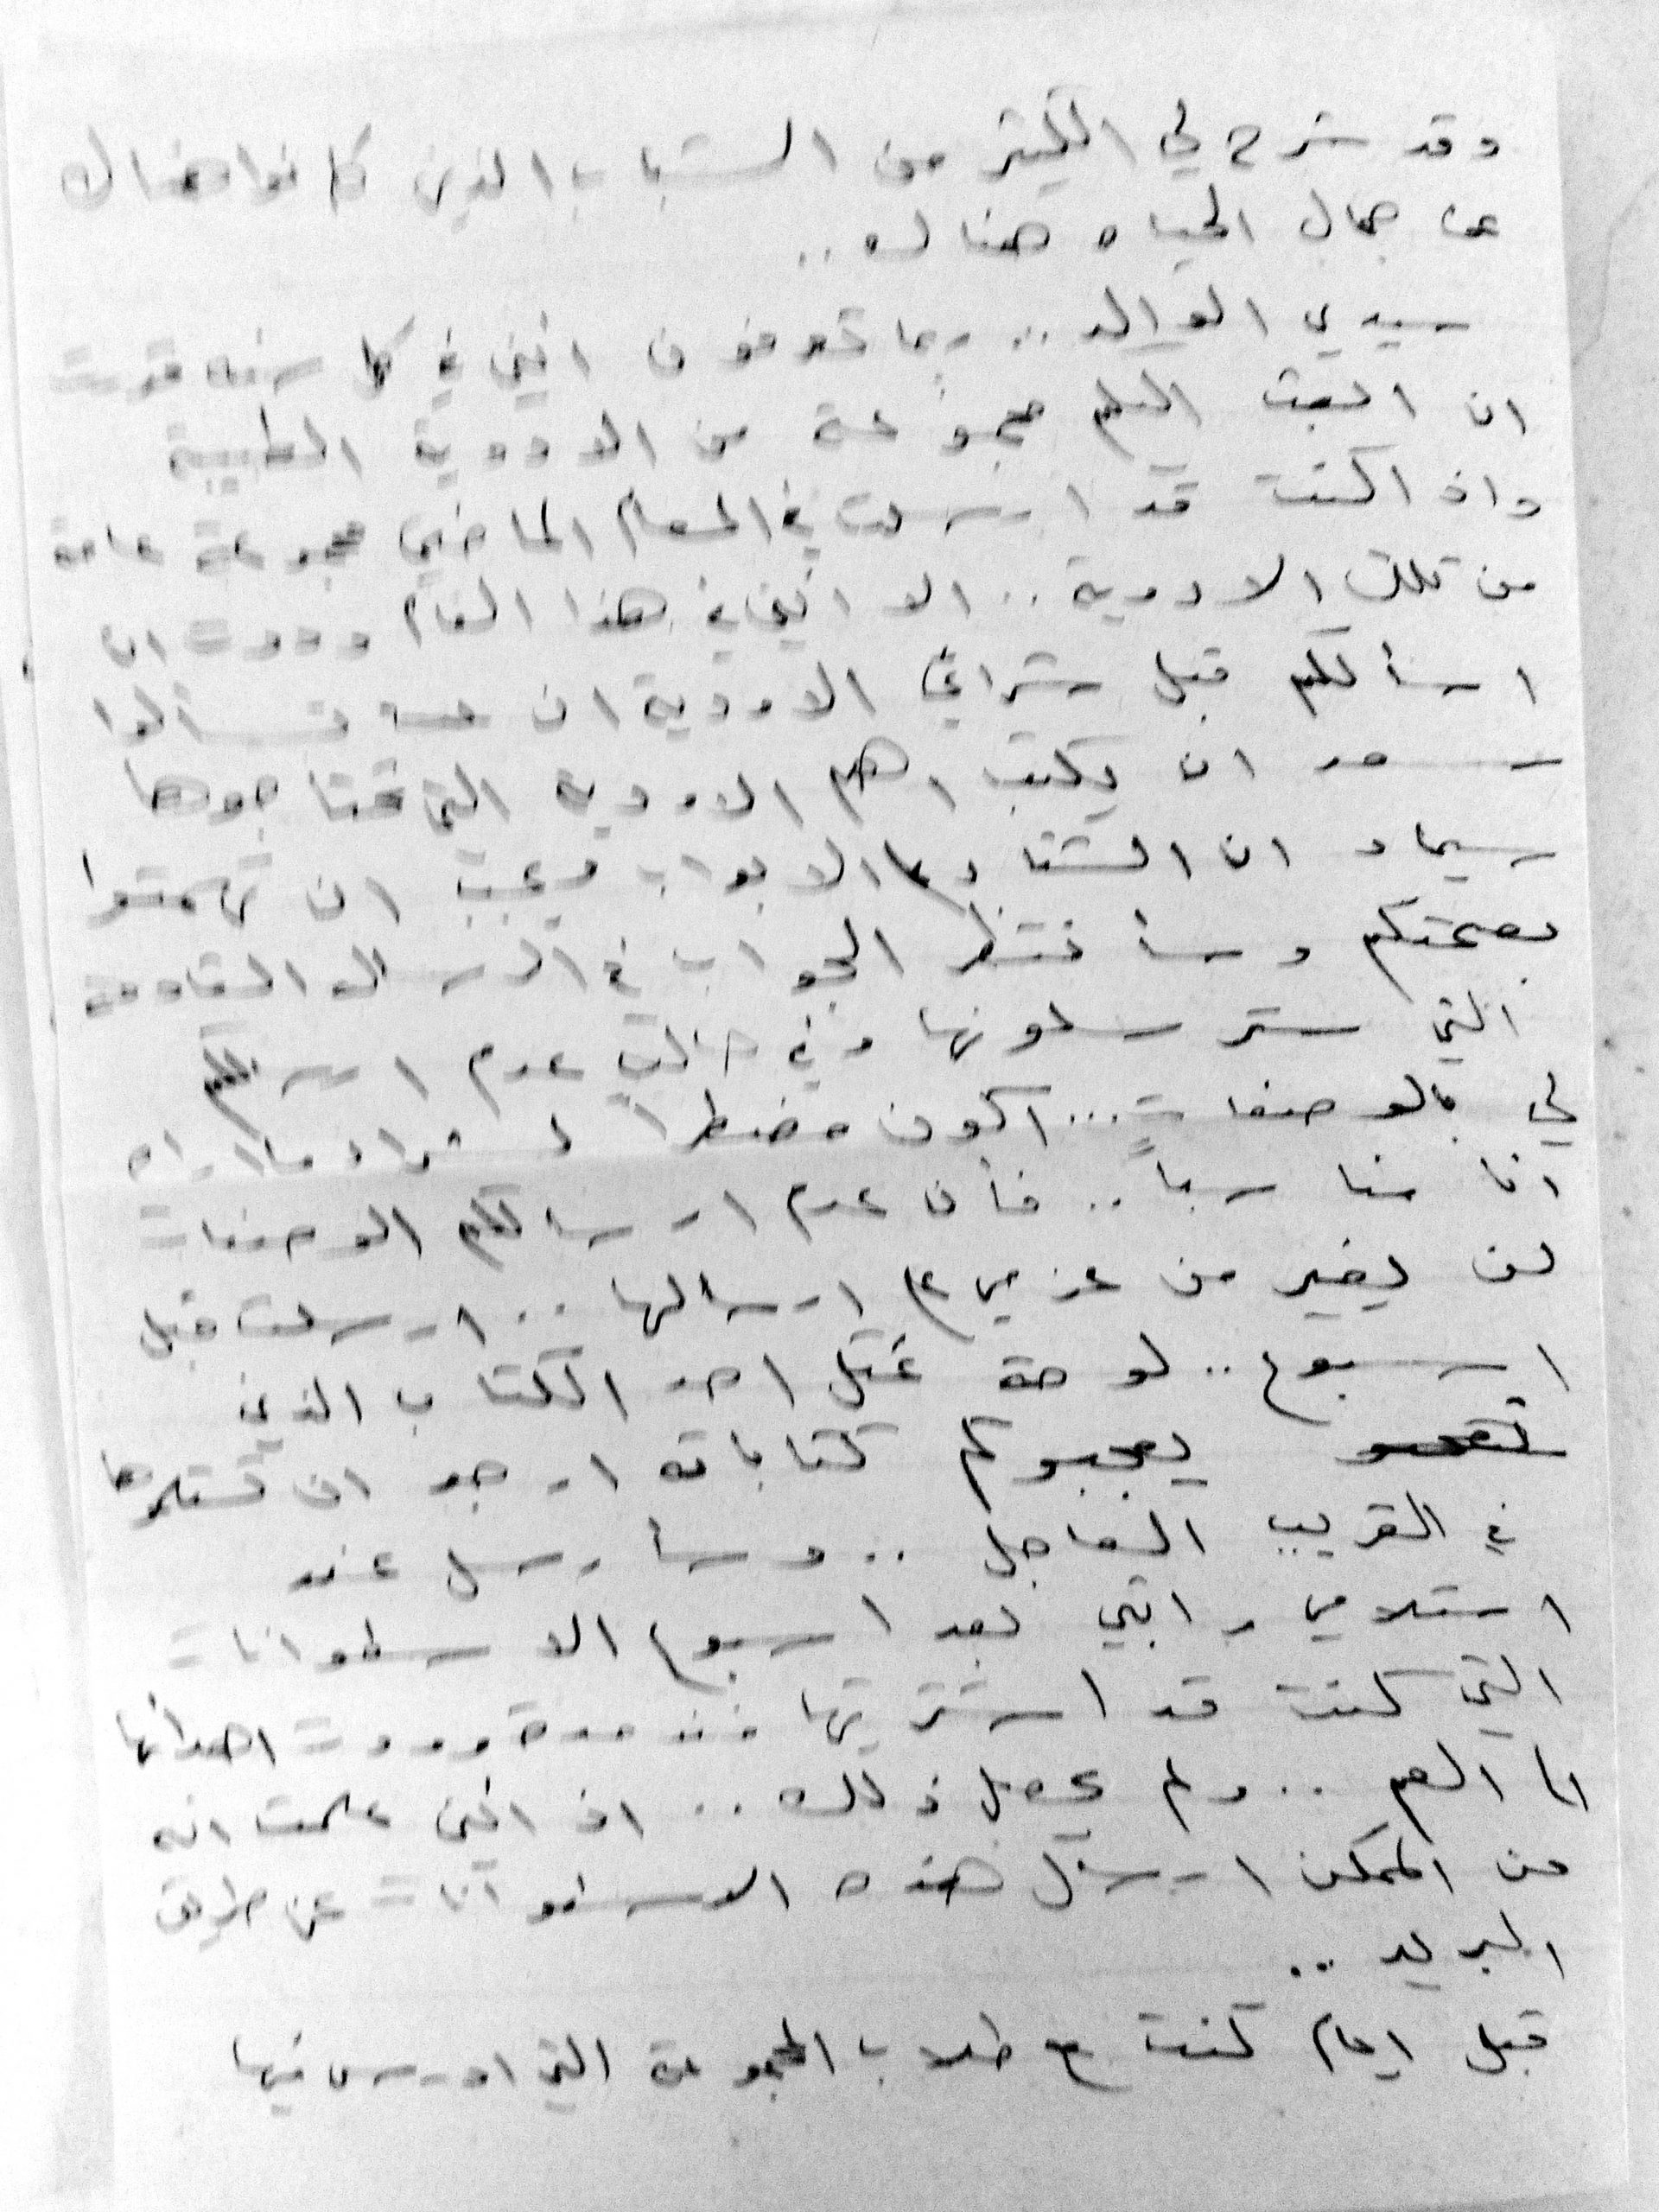 وقد شرح لي الكثير من الشباب الذين كانوا هناك
عن جمال الحياه هناك ..
سيدي الوالد .. ربما تعرفون انني في كل سنه قررت
ان ابعث اليكم مجموعة من الادوية الطبية
واذا كنت قد ارسلت في العام الماضي مجموعة عامة
من تلك الادوية .. الا انني في هذا العام وددت ان
اسألكم قبل شرائي الادوية ان تسألوا
ان يكتب اهم الادوية التي تحتاجوها
سيما و ان الشتاء على الابواب ويجب ان تهتموا
بصحتكم وسأنتظر الجواب في الرساله القادمة
التي سترسلونها وفي حالة عدم ارسالكم
لي بالوصفات ... اكون مضطراً لشراء ما اراه
انا مناسباً .. فأن عدم ارسالكم الوصفات
لن يغير من عزمي على ارسالها .. ارسلت قبل
اسبوع .. لوحة تمثل احد الكتاب الذين
يعجبوكم كتاباته ارجو ان تستلموها
في القريب العاجل .. وسأرسل عند
استلامي راتبي بعد اسبوع الاسطوانات
التي كنت قد اشتريتها منذ مدة ووددت اهدائها
الى العم .. ولم يحصل ذلك .. اذ انني علمت انه
من الممكن ارسال هذه الاسطوانات عن طريق
البريد ..
قبل ايام كنت مع طلاب المجموعة التي ادرس فيها